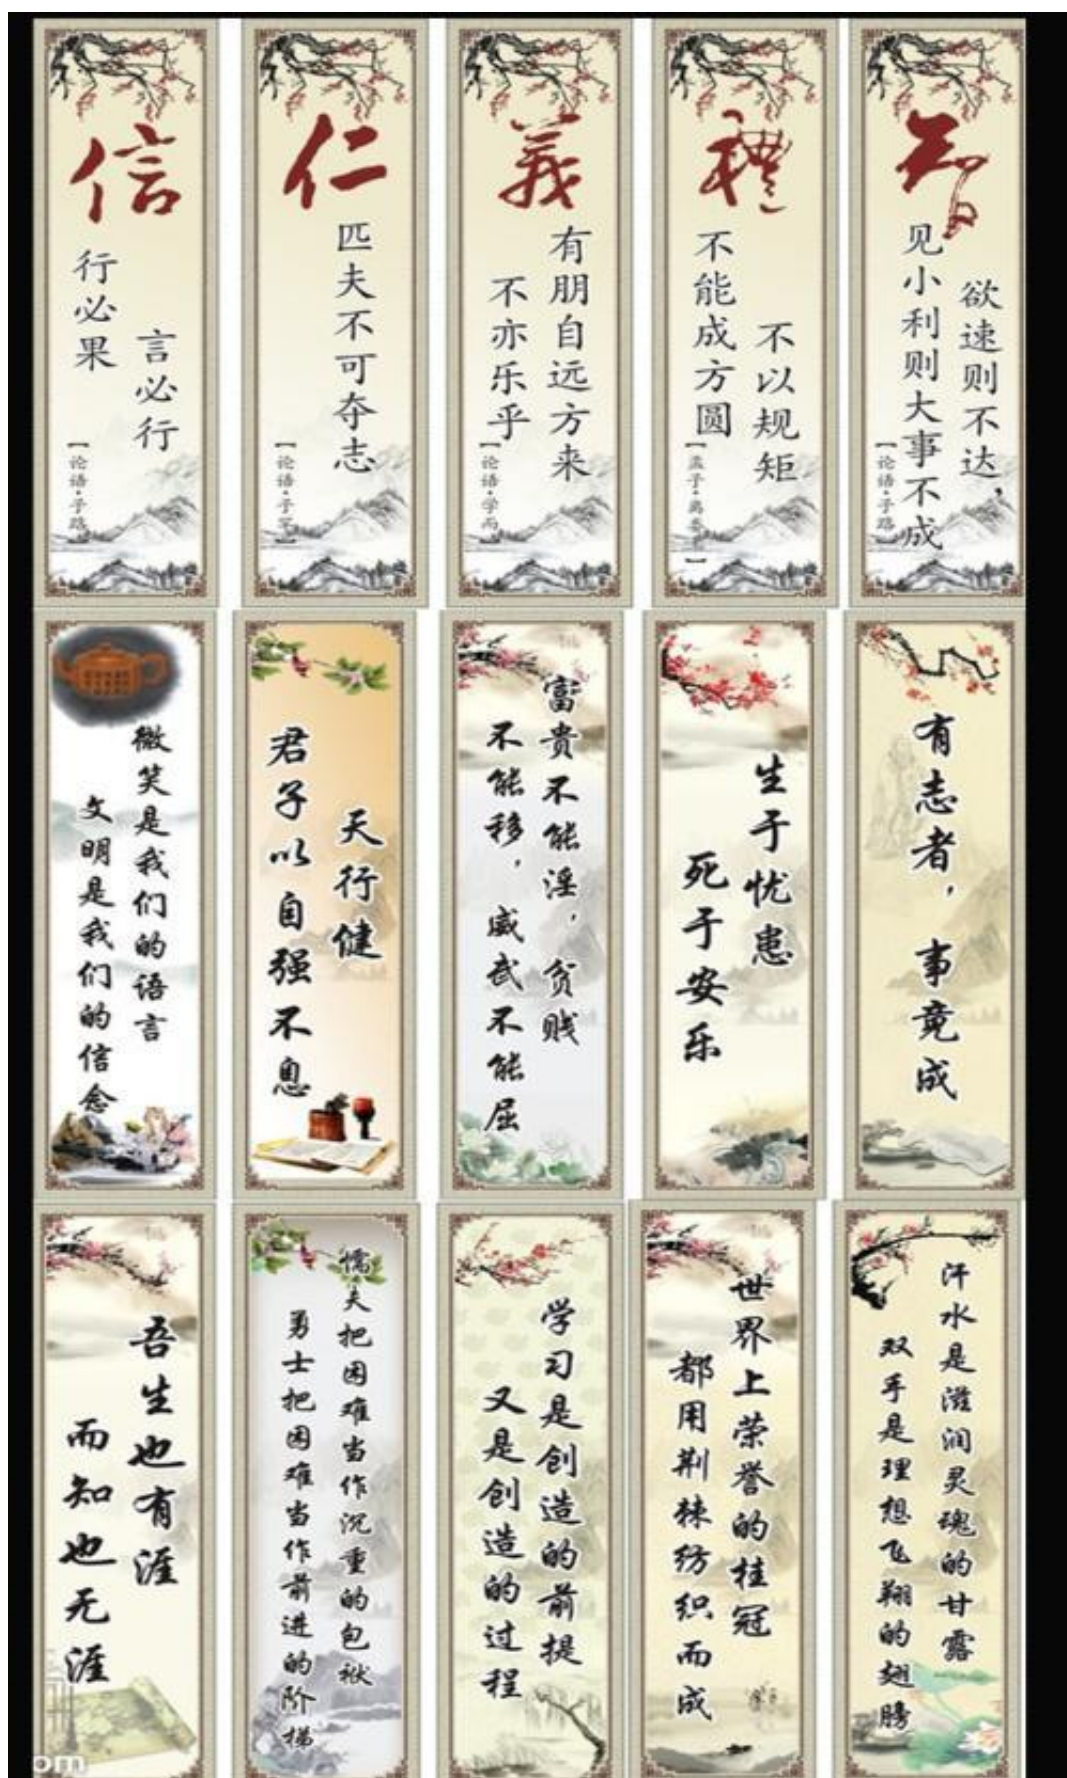 信
言必行
行必果
【论语·子路】
仁
匹夫不可夺志
【论语·子罕】
義
有朋自远方来
不亦乐乎
【论语·学而】
禮
不以规矩
不能成方圆
【孟子·离娄上】
智
欲速则不达，
见小利则大事不成
【论语·子路】
微笑是我们的语言
文明是我们的信念
天行健
君子以自强不息
富贵不能淫，贫贱
不能移，威武不能屈
生于忧患
死于安乐
有志者，事竟成
吾生也有涯
而知也无涯
懦夫把困难当作沉重的包袱
勇士把困难当作前进的阶梯
学习是创造的前提
又是创造的过程
世界上荣誉的桂冠
都用荆棘纺织而成
汗水是滋润灵魂的甘露
双手是理想飞翔的翅膀
om